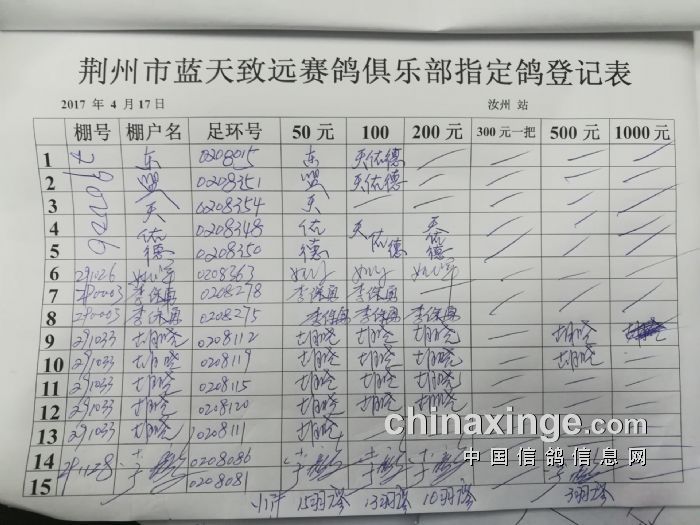 荆州市蓝天致远赛鸽俱乐部指定鸽登记表
2017 年 4 月 17 日 汝州 站
棚号 棚户名 足环号 50 元 100 200 元 300 元一把 500 元 1000 元
1 东 0208015 东 天佑德
2 盟 0208351 盟 天佑德
3 天 0208354 天
4 佑 0208348 佑 天
5 德 0208350 德 佑 德 德
6 291026 0208363
7 290003 李保国 0208278 李保国 李保国
8 290003 李保国 0208275 李保国 李保国 李保国
9 291033 胡晓 0208112 胡晓 胡晓 胡晓 胡晓
10 291033 胡晓 0208119 胡晓 胡晓 胡晓 胡晓
11 291033 胡晓 0208115 胡晓 胡晓 胡晓
12 291033 胡晓 0208120 胡晓 胡晓 胡晓
13 291033 胡晓 0208111 胡晓
14 291128 0208086
15 020808
小计 15羽 13羽 10羽 3羽
chinaxinge.com
中国信鸽信息网